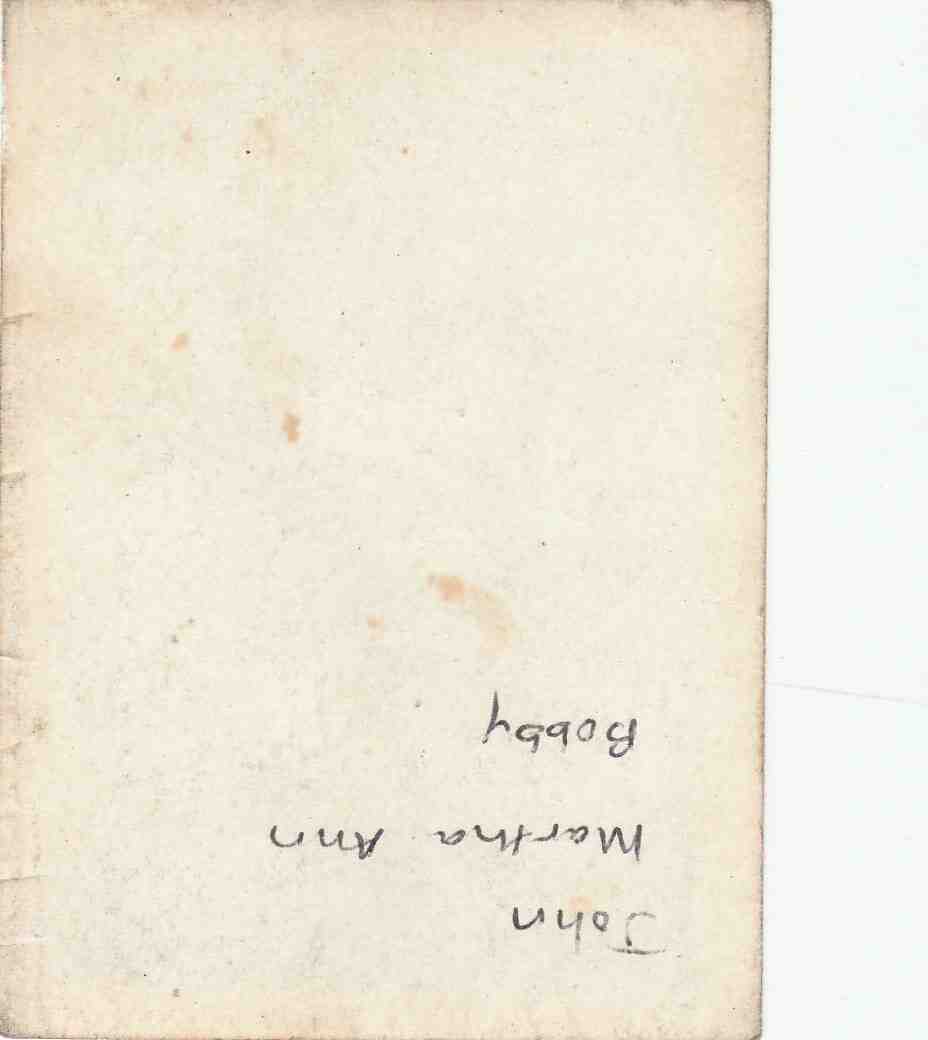 John
Martha Ann
Bobby